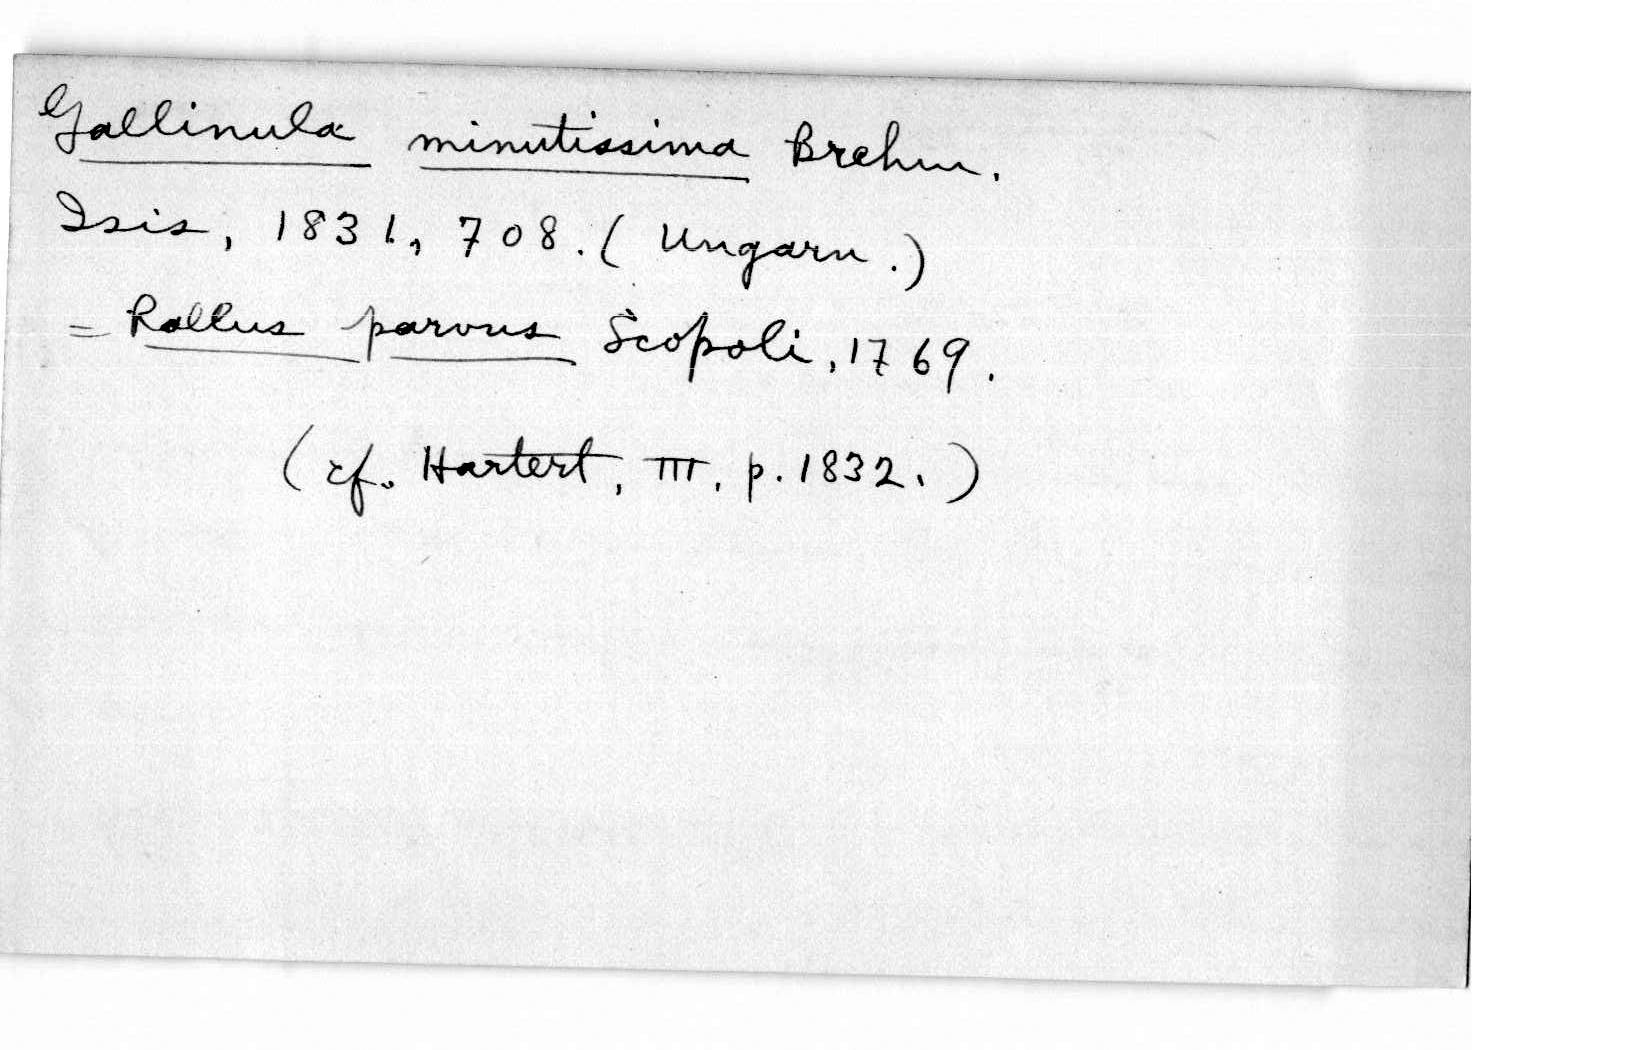 Gallinula minutissima Brehm.
Isis, 1831, 708. (Ungarn.)
= Rallus parvus Scopoli, 1769.
(cf. Hartert, III, p. 1832.)